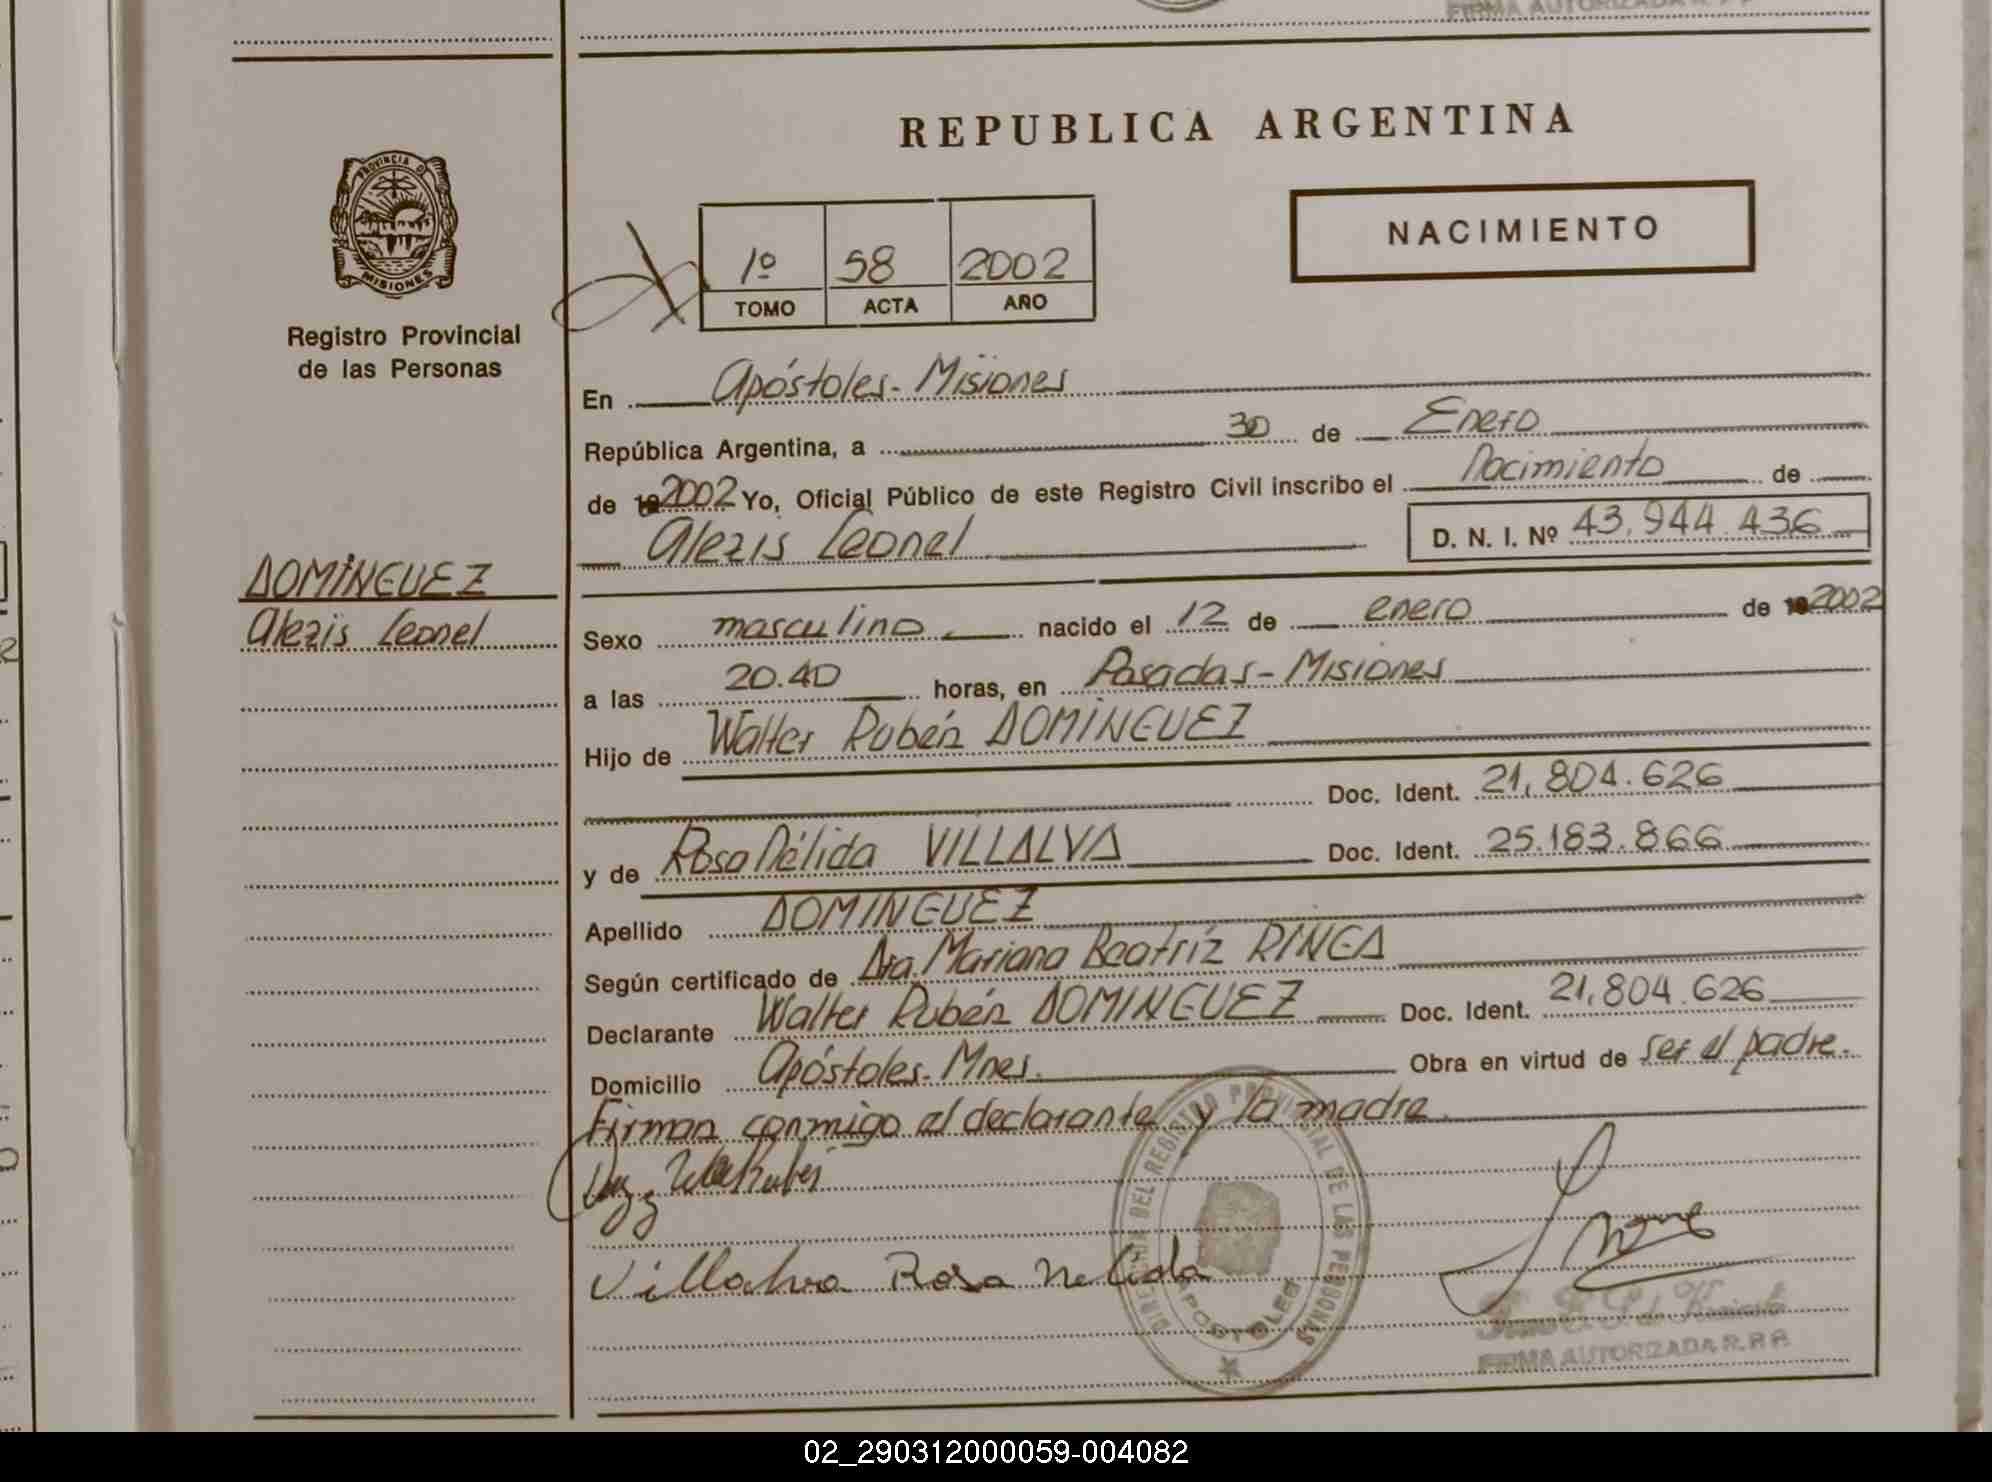 FIRMA AUTORIZADA R. P. P.
REPUBLICA ARGENTINA
PROVINCIA D
MISIONES
Registro Provincial
de las Personas
NACIMIENTO
1º 58 2002
TOMO ACTA AÑO
En Apóstoles - Misiones
República Argentina, a 30 de Enero
de 192002 Yo, Oficial Público de este Registro Civil inscribo el Nacimiento de
Alexis Leonel D. N. I. Nº 43.944.436
DOMÍNGUEZ
Alexis Leonel
Sexo masculino nacido el 12 de enero de 192002
a las 20.40 horas, en Posadas - Misiones
Hijo de Walter Rubén DOMÍNGUEZ
Doc. Ident. 21.804.626
y de Rosa Nélida VILLALVA Doc. Ident. 25.183.866
Apellido DOMINGUEZ
Según certificado de Dra. Mariana Beatríz RINGA
Declarante Walter Rubén DOMINGUEZ Doc. Ident. 21.804.626
Domicilio Apóstoles - Mnes. Obra en virtud de ser el padre.
Firman conmigo el declarante y la madre.
Villalva Rosa Nelida
DIRECCION DEL REGISTRO PROVINCIAL DE LAS PERSONAS
APOSTOLES
FIRMA AUTORIZADA R. P. P.
02_290312000059-004082